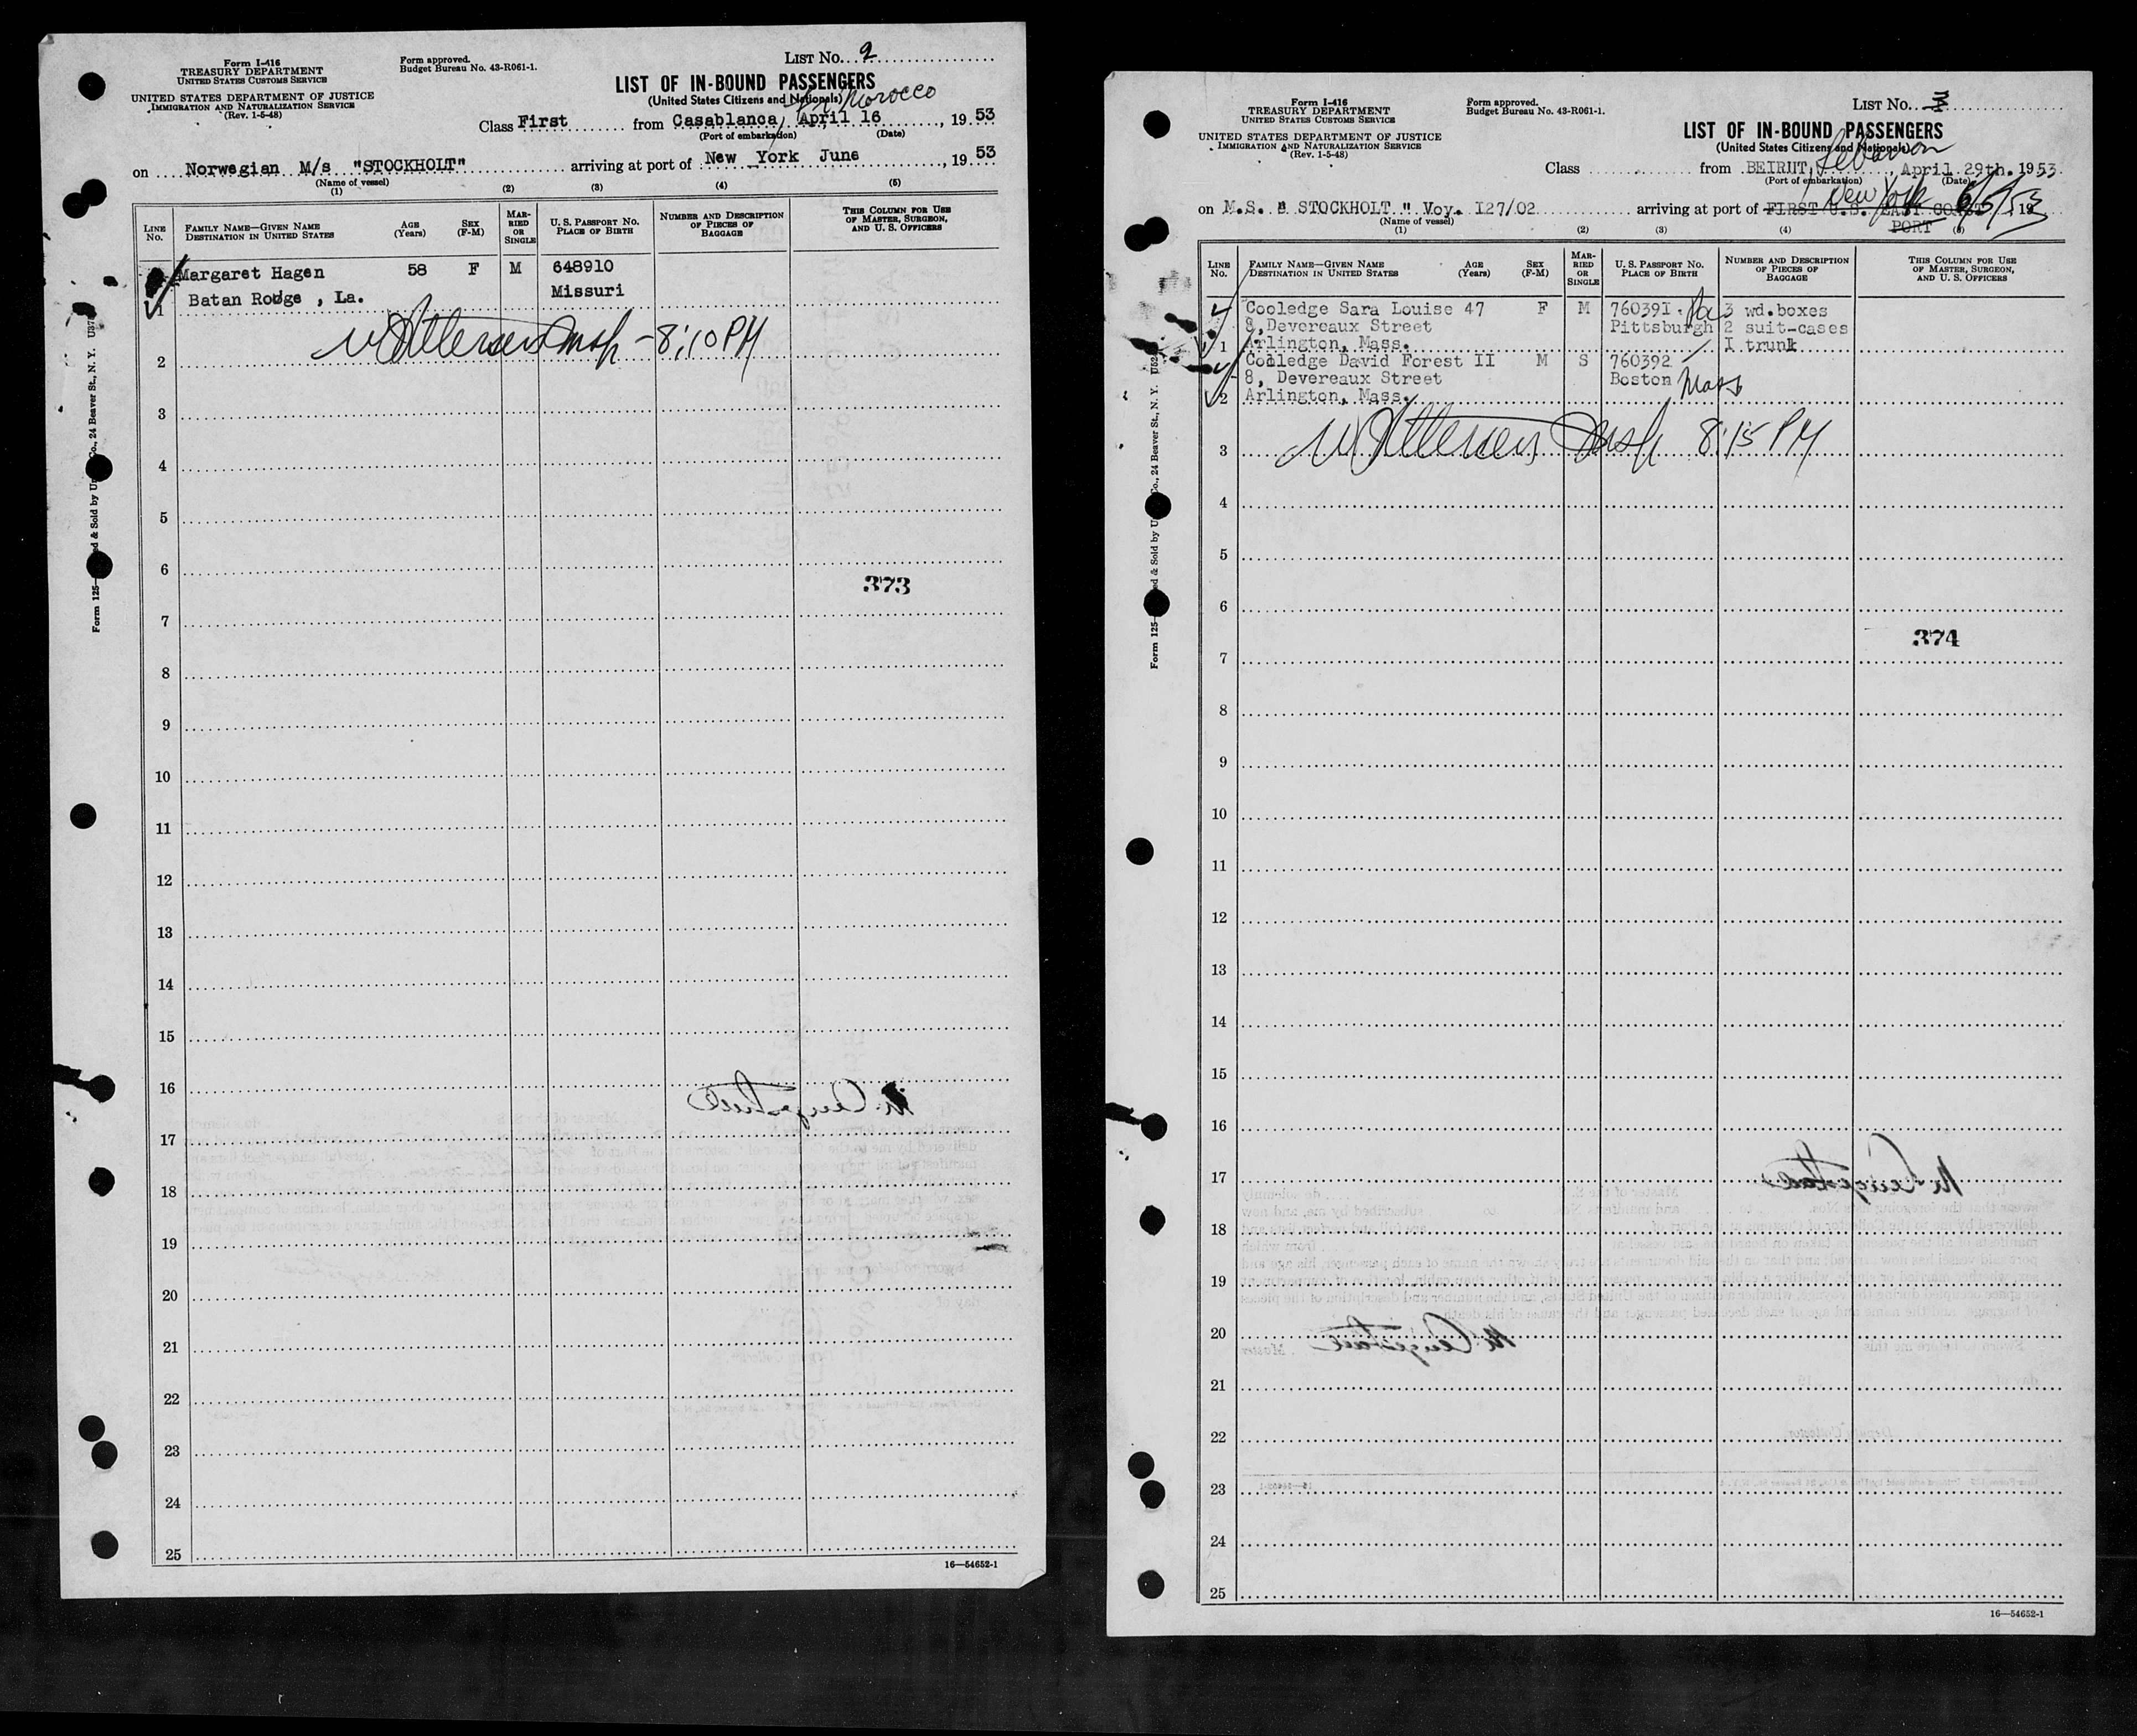 Form I-416
TREASURY DEPARTMENT
UNITED STATES CUSTOMS SERVICE
UNITED STATES DEPARTMENT OF JUSTICE
IMMIGRATION AND NATURALIZATION SERVICE
(Rev. 1-5-48)
Form approved.
Budget Bureau No. 43-R061-1.
LIST No. 2
LIST OF IN-BOUND PASSENGERS
(United States Citizens and Nationals)
Class First from Casablanca, Fr. Morocco April 16, 1953
(Port of embarkation) (Date)
on Norwegian M/s "STOCKHOLT" arriving at port of New York June, 1953
(Name of vessel)
(1) (2) (3) (4) (5)
LINE No. FAMILY NAME—GIVEN NAME DESTINATION IN UNITED STATES AGE (Years) SEX (F-M) MARRIED OR SINGLE U. S. PASSPORT NO. PLACE OF BIRTH NUMBER AND DESCRIPTION OF PIECES OF BAGGAGE THIS COLUMN FOR USE OF MASTER, SURGEON, AND U. S. OFFICERS
Margaret Hagen 58 F M 648910
Batan Rouge , La. Missuri
1
8:10 PM
2
3
4
5
6
373
7
8
9
10
11
12
13
14
15
16
17
18
19
20
21
22
23
24
25
16—54652-1
Form I-416
TREASURY DEPARTMENT
UNITED STATES CUSTOMS SERVICE
UNITED STATES DEPARTMENT OF JUSTICE
IMMIGRATION AND NATURALIZATION SERVICE
(Rev. 1-5-48)
Form approved.
Budget Bureau No. 43-R061-1.
LIST No. 3
LIST OF IN-BOUND PASSENGERS
(United States Citizens and Nationals)
Class from BEIRUT, Lebanon, April 29th. 1953
(Port of embarkation) (Date)
New York 6/5/53
on M.S. " STOCKHOLT " Voy. I27/02 arriving at port of FIRST U.S. EAST COAST, 19
(Name of vessel) PORT
(1) (2) (3) (4) (5)
LINE No. FAMILY NAME—GIVEN NAME DESTINATION IN UNITED STATES AGE (Years) SEX (F-M) MARRIED OR SINGLE U. S. PASSPORT NO. PLACE OF BIRTH NUMBER AND DESCRIPTION OF PIECES OF BAGGAGE THIS COLUMN FOR USE OF MASTER, SURGEON, AND U. S. OFFICERS
Cooledge Sara Louise 47 F M 760391 Pa 3 wd.boxes
8,Devereaux Street Pittsburgh 2 suit-cases
1 Arlington, Mass. I trunk
Cooledge David Forest II M S 760392
8, Devereaux Street Boston Mass
2 Arlington, Mass.
8:15 PM
3
4
5
6
374
7
8
9
10
11
12
13
14
15
16
17
18
19
20
21
22
23
24
25
16—54652-1